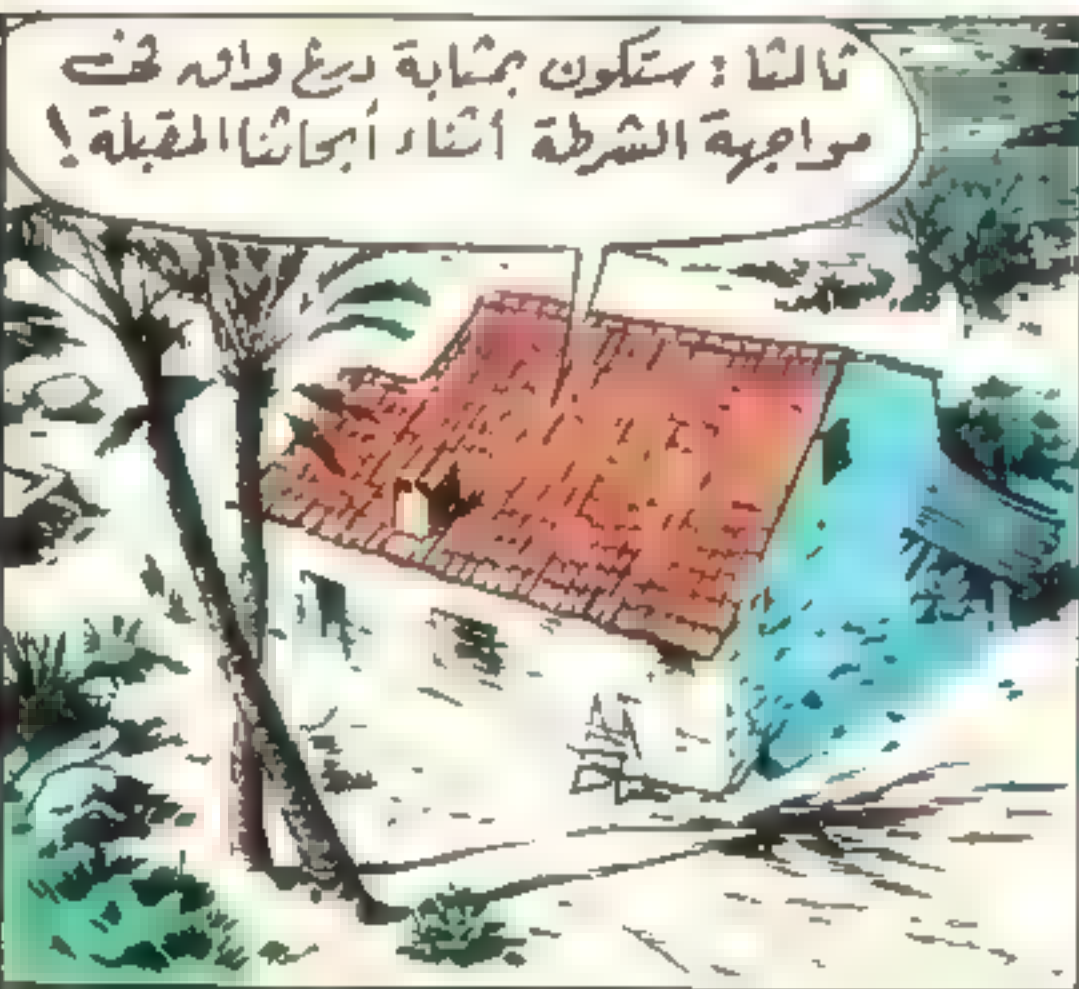 ثالثا : ستكون بمثابة درع واق في
مواجهة الشرطة أثناء أبحاثنا المقبلة !